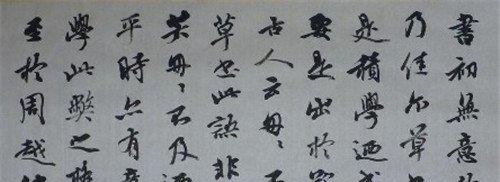 書初無意
乃佳尔草
是積學迺成
要是出於
古人云匆匆不
草書此語非
若匆匆不及迺
平時亦有意
學此弊之極
至於周越